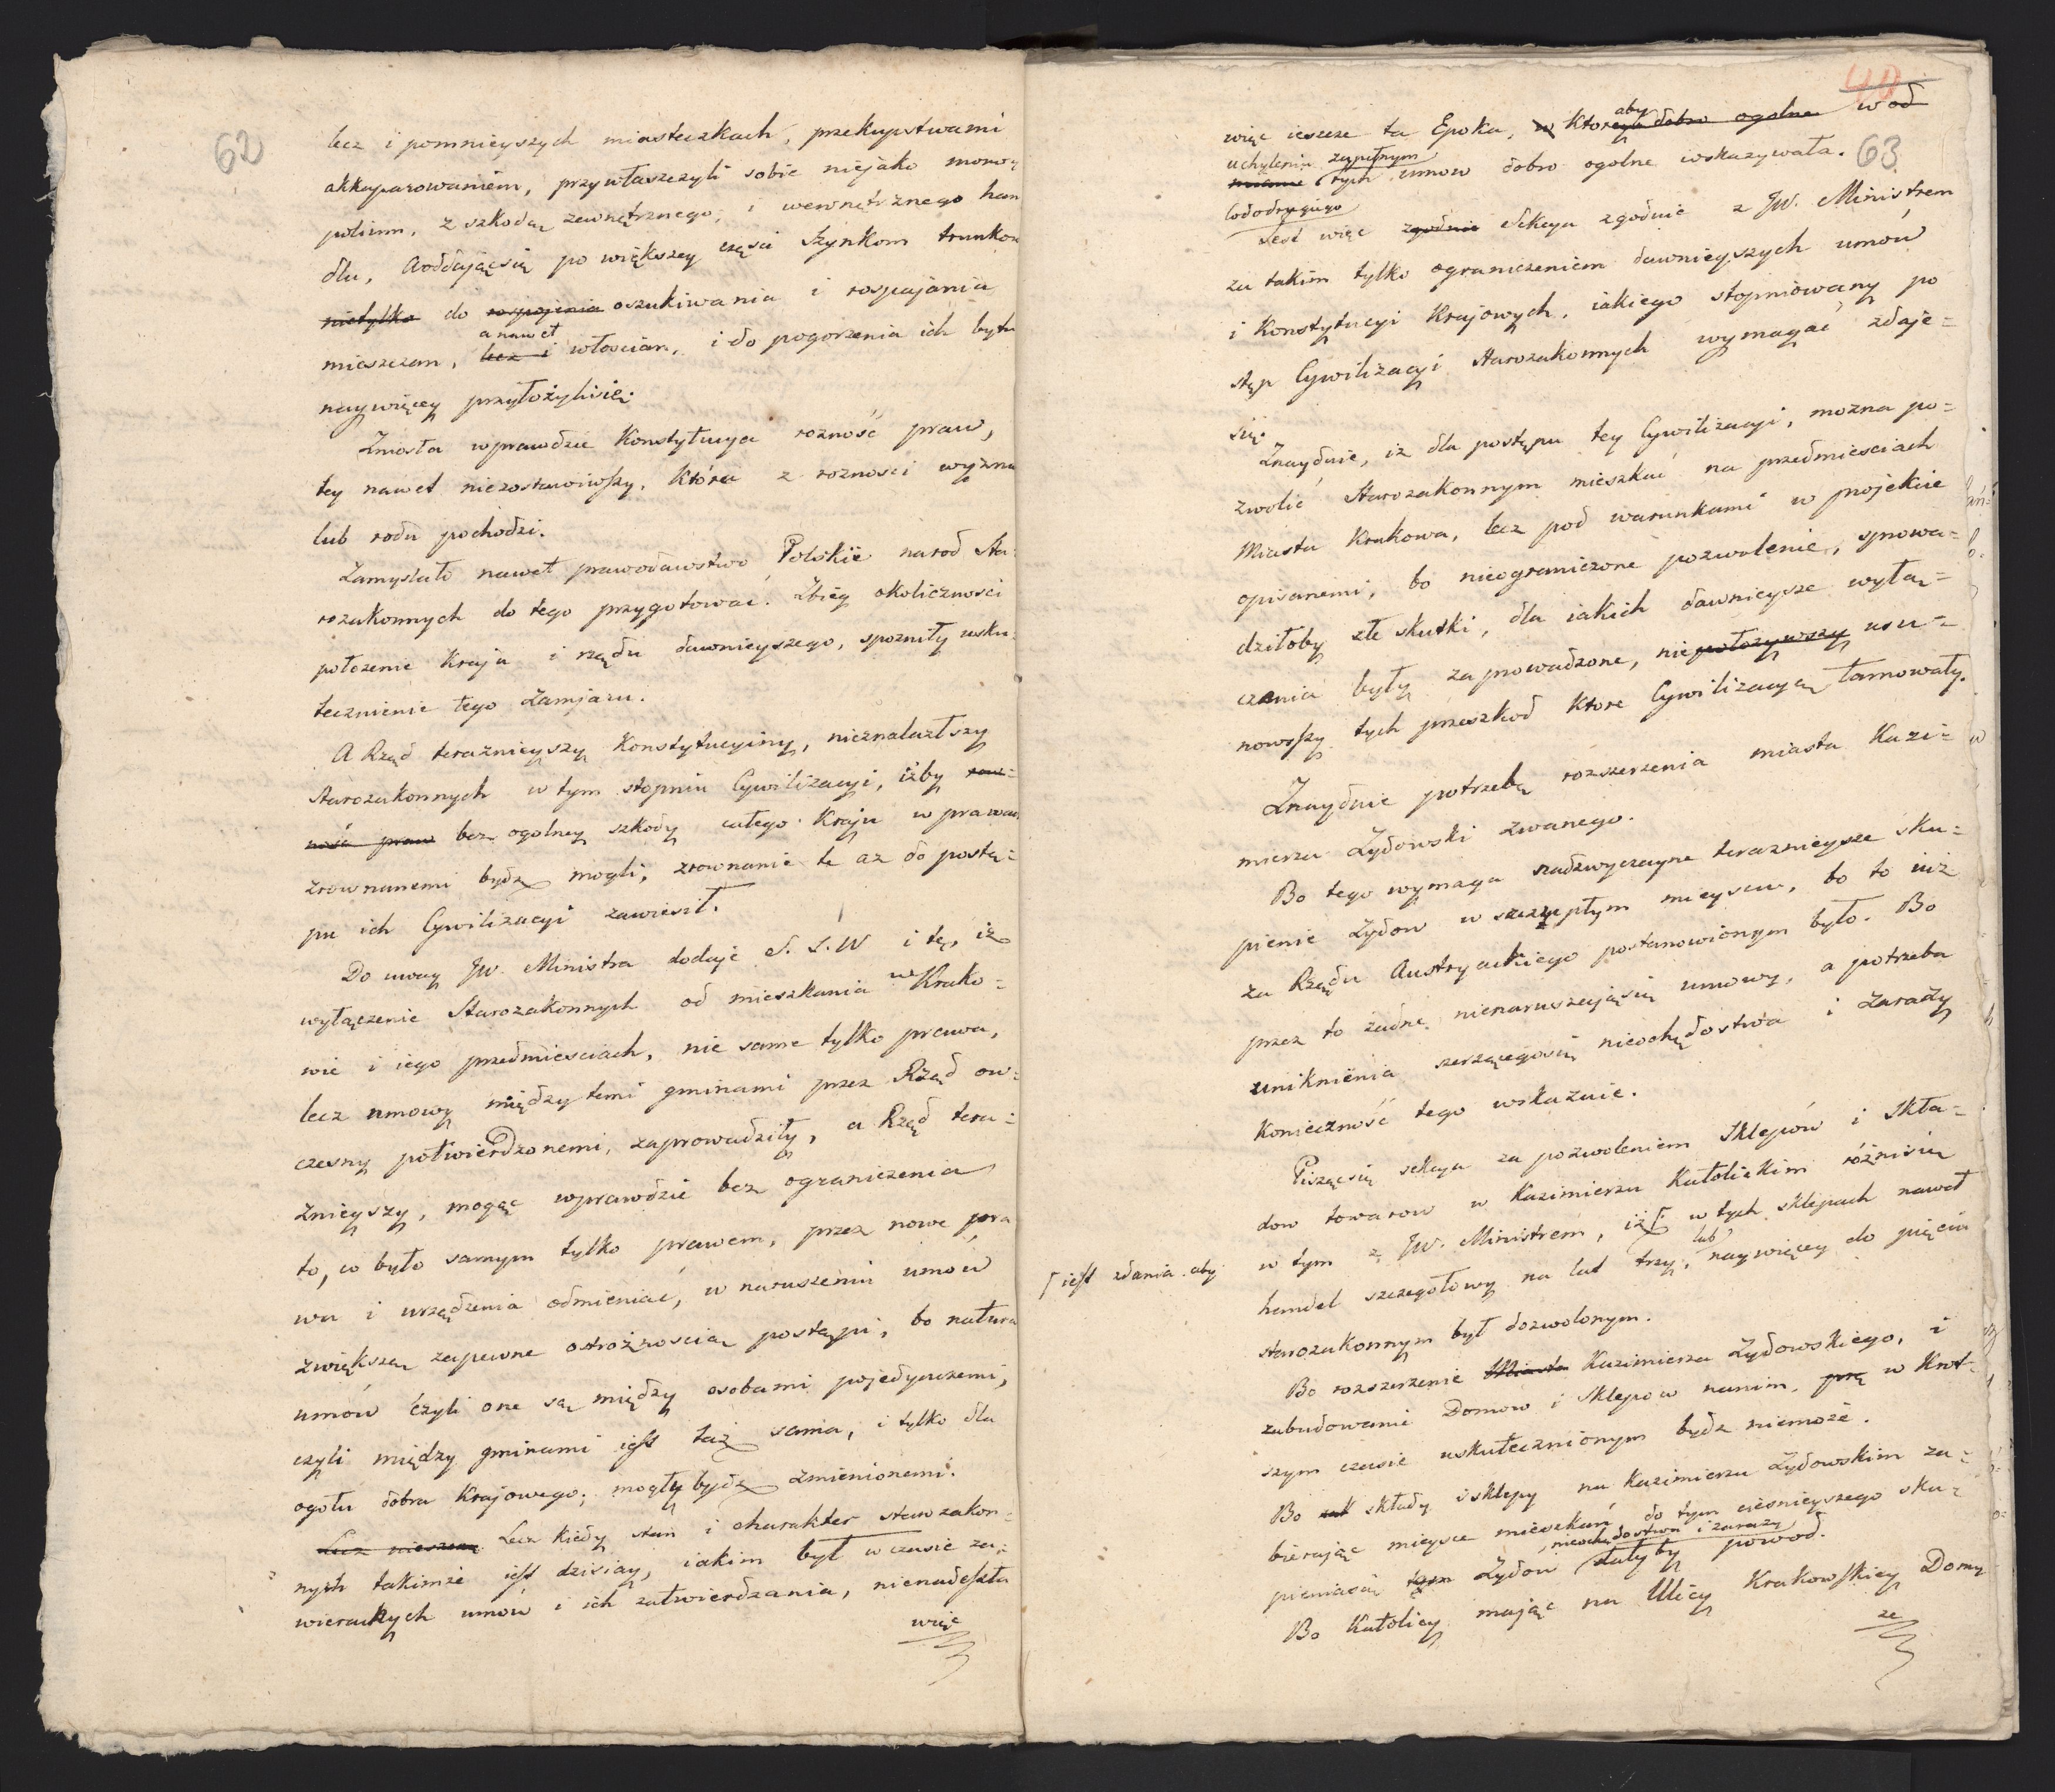 62
lecz i pomnieyszych miasteczkach, przekupstwami
akkuparowaniem, przywłaszczyli sobie niejako mono¬
polium, z szkodą zewnętrznego, i wewnętrznego han
dlu, A oddającsię po większey częsci szynkom trunkow
nietylko do rospojenia oszukiwania i rospajania
a nawet
mieszczan, lecz i włoscian, i do pogorzenia ich bytu
naywięcey przyłożylisię.
Zniosła wprawdzie Konstytucya rozność praw,
tey nawet niezostawiwszy, która z roznosci wyzna
lub rodu pochodzi.
Zamyslało nawet prawodawstwo Polskie narod Sta¬
rozakonnych do tego przygotować. Zbieg okoliczności
położenie Kraju i rządu dawnieyszego, spozniły usku¬
tecznienie tego zamjaru.
A Rząd teraznieyszy Konstytucyiny, nieznalazłszy
Starozakonnych w tym stopniu Cywilizacyi, iżby row=
ność praw bez ogolney szkody całego Kraju w prawach
zrownanemi bydz mogli, zrownanie te az do postę=
pu ich Cywilizacyi zawiesił.
Do uwag JW. Ministra dodaje S. S. W i tę, iż
wyłączenie Starozakonnych od mieszkania w Krako=
wie i iego przedmiesciach, nie same tylko prawa,
lecz umowy między temi gminami przez Rząd ow=
czesny potwierdzonemi, zaprowadziły, a Rząd tera=
znieyszy, mogąc wprawdzie bez ograniczenia
to, co było samym tylko prawem, przez nowe pra
wa i urządzenia odmieniać, w naruszeniu umów
zwiększą zapewne ostrożnoscią postąpi, bo natura
umów czyli one są między osobami pojedynczemi,
czyli między gminami iest taż sama, i tylko dla
ogołu dobra Krajowego, mogły bydz zmienionemi.
Lecz kiedy stan i charakter starozakon=
nych takimże iest dzisiay, iakim był w czasie za=
wierankych umów i ich zatwierdzania, nienadeszła
więc
40
63
aby
więc ieszcze ta Epoka, w ktorey dobro ogolne w od
uchyleniu zupełnym
tych umow dobro ogolne wskazywała.
Co do drugiego
Jest więc zgodnie Sekcya zgodnie z JW. Ministrem
za takim tylko ograniczeniem dawnieyszych umów
i Konstytucyi Krajowych, iakiego stopniowany po
stęp Cywilizacyi Starozakonnych wymagać zdaje=
się.
Znayduie, iz dla postępu tey Cywilizacyi, mozna po=
zwolić Starozakonnym mieszkać na przedmiesciach
Miasta Krakowa, lecz pod warunkami w projekcie
opisanemi, bo nieograniczone pozwolenie, sprowa=
dziłoby złe skutki, dla iakich dawnieysze wyłą=
czenia były zaprowadzone, niepołozywszy usu=
nowszy tych przeszkod które Cywilizacyą tamowały.
Znayduie potrzebę rozszerzenia miasta Kazi=
mierza Zydowski zwanego.
Bo tego wymaga nadzwyczayne teraznieysze sku=
pienie Zydow w szczupłym mieyscu, bo to iuż
za Rządu Austryackiego postanowionym było. Bo
przez to żadne nienaruszającsię umowy, a potrzeba
uniknienia szerzącegosię nieochędostwa i zarazy
Konieczność tego wskazuie.
Pisząc się sekcya za pozwoleniem Sklepów i Skła=
dow towarow w Kazimierzu Katolickim rózni się
w tym z JW. Ministrem, iż Γ w tych sklepach nawet
Γ iest zdania aby
lub
handel szczegołowy na lat trzy, naywięcey do pięciu
starozakonnym był dozwolonym.
Bo rozszerzenie Miasta Kazimierza Zydowskiego, i
zabudowanie Domow i Sklepow na nim, prę w krot=
szym czasie uskutecznionym bydz niemoże.
Bo składy i sklepy na Kazimierzu Zydowskim za=
bierając miejsce mieszkań, do tym ciesnieyszego sku=
nieochędostwa i zarazy
pieniasię Zydów dałyby powod.
Bo Katolicy mając na Ulicy Krakowskiey Domy
ze